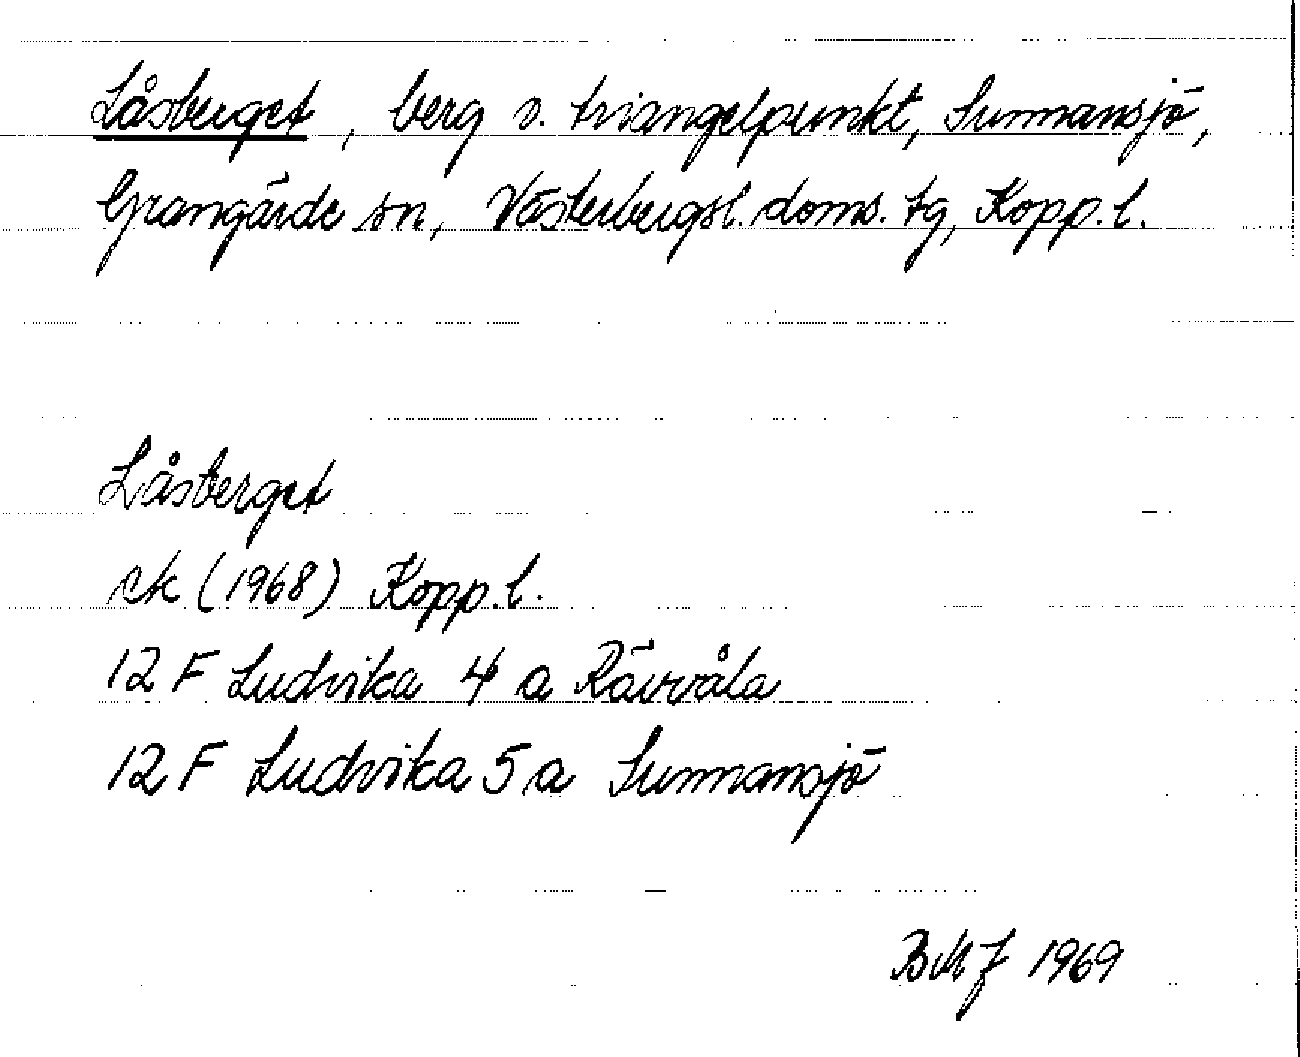 Låsberget, berg v. triangelpunkt, Sunnansjö,
Grangärde sn, Västerbergsl. doms. tg, Kopp. l.
Låsberget
ek (1968) Kopp. l.
12 F Ludvika 4 a Rävvåla
12 F Ludvika 5 a Sunnansjö
BMJ 1969